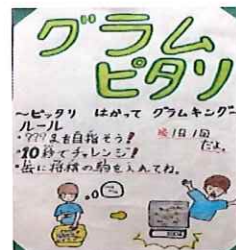 グラム
ピタリ
～ピッタリ はかって グラムキング～
ルール
・???gを目指そう!
・10秒でチャレンジ!
・缶に将棋の駒を入れてね。
1日1回
だよ。